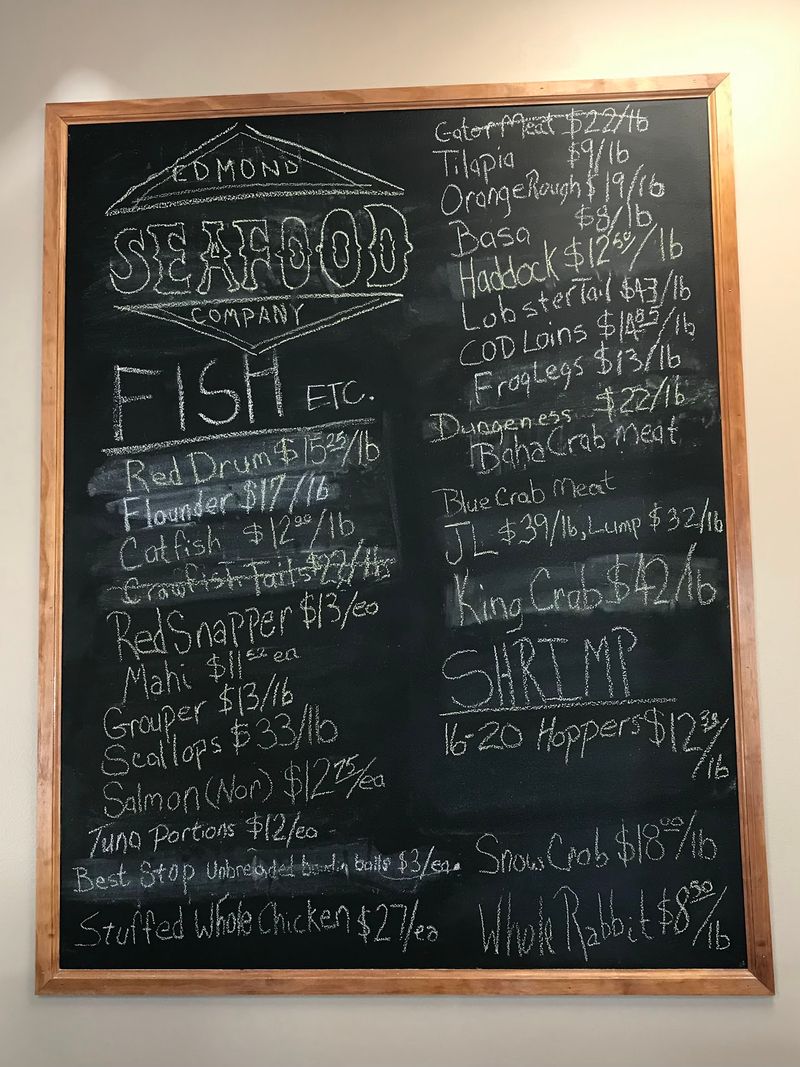 EDMOND
SEAFOOD
COMPANY
FISH ETC.
Red Drum $15.25/lb
Flounder $17/lb
Catfish $12.00/lb
Crawfish Tails $22/lb
Red Snapper $13/ea
Mahi $11.52 ea
Grouper $13/lb
Scallops $33/lb
Salmon (Nor) $12.75/ea
Tuna Portions $12/ea
Best Stop Unbreaded boudin balls $3/ea.
Stuffed Whole Chicken $27/ea
Gator Meat $22/lb
Tilapia $9/lb
Orange Rough $19/lb
Basa $8/lb
Haddock $12.50/lb
Lobster Tail $43/lb
COD Loins $14.85/lb
Frog Legs $13/lb
Dungeness $22/lb
Baha Crab Meat
Blue Crab Meat
JL $39/lb, Lump $32/lb
King Crab $42/lb
SHRIMP
16-20 Hoppers $12.39/lb
Snow Crab $18.00/lb
Whole Rabbit $8.50/lb